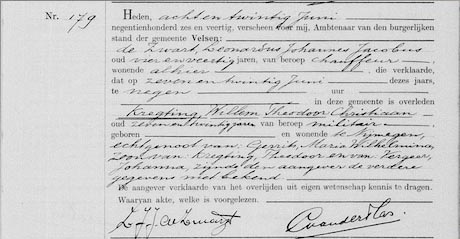 Nr. 179
Heden, acht en twintig Juni
negentienhonderd zes en veertig, verscheen voor mij, Ambtenaar van den burgerlijken
stand der gemeente Velsen:
de Zwart, Leonardus Johannes Jacobus
oud vier en veertig jaren, van beroep chauffeur
wonende alhier, die verklaarde,
dat op zeven en twintig Juni dezes jaars,
te negen uur
in deze gemeente is overleden
Kregting, Willem Theodoor Christiaan
oud zeven en twintig jaren van beroep militair
geboren en wonende te Nijmegen,
echtgenoot van Gerrits, Maria Wilhelmina,
zoon van Kregting, Theodoor en van
Johanna, zijnde den aangever de verdere
gegevens niet bekend
De aangever verklaarde van het overlijden uit eigen wetenschap kennis te dragen.
Waaryan akte, welke is voorgelezen.
L.J.J. de Zwart